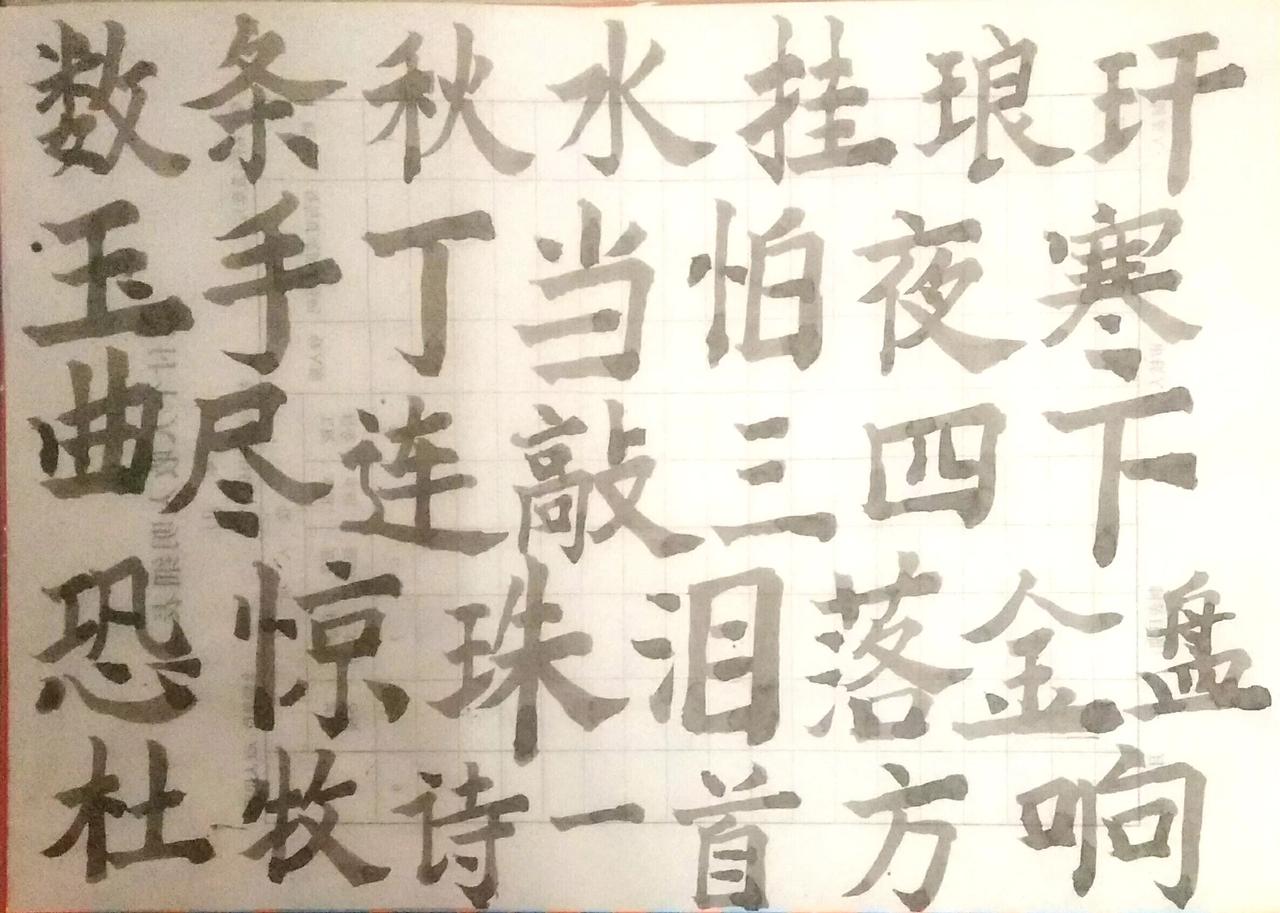 数条秋水挂琅玕
玉手丁当怕夜寒
曲尽连敲三四下
恐惊珠泪落金盘
杜牧诗一首方响